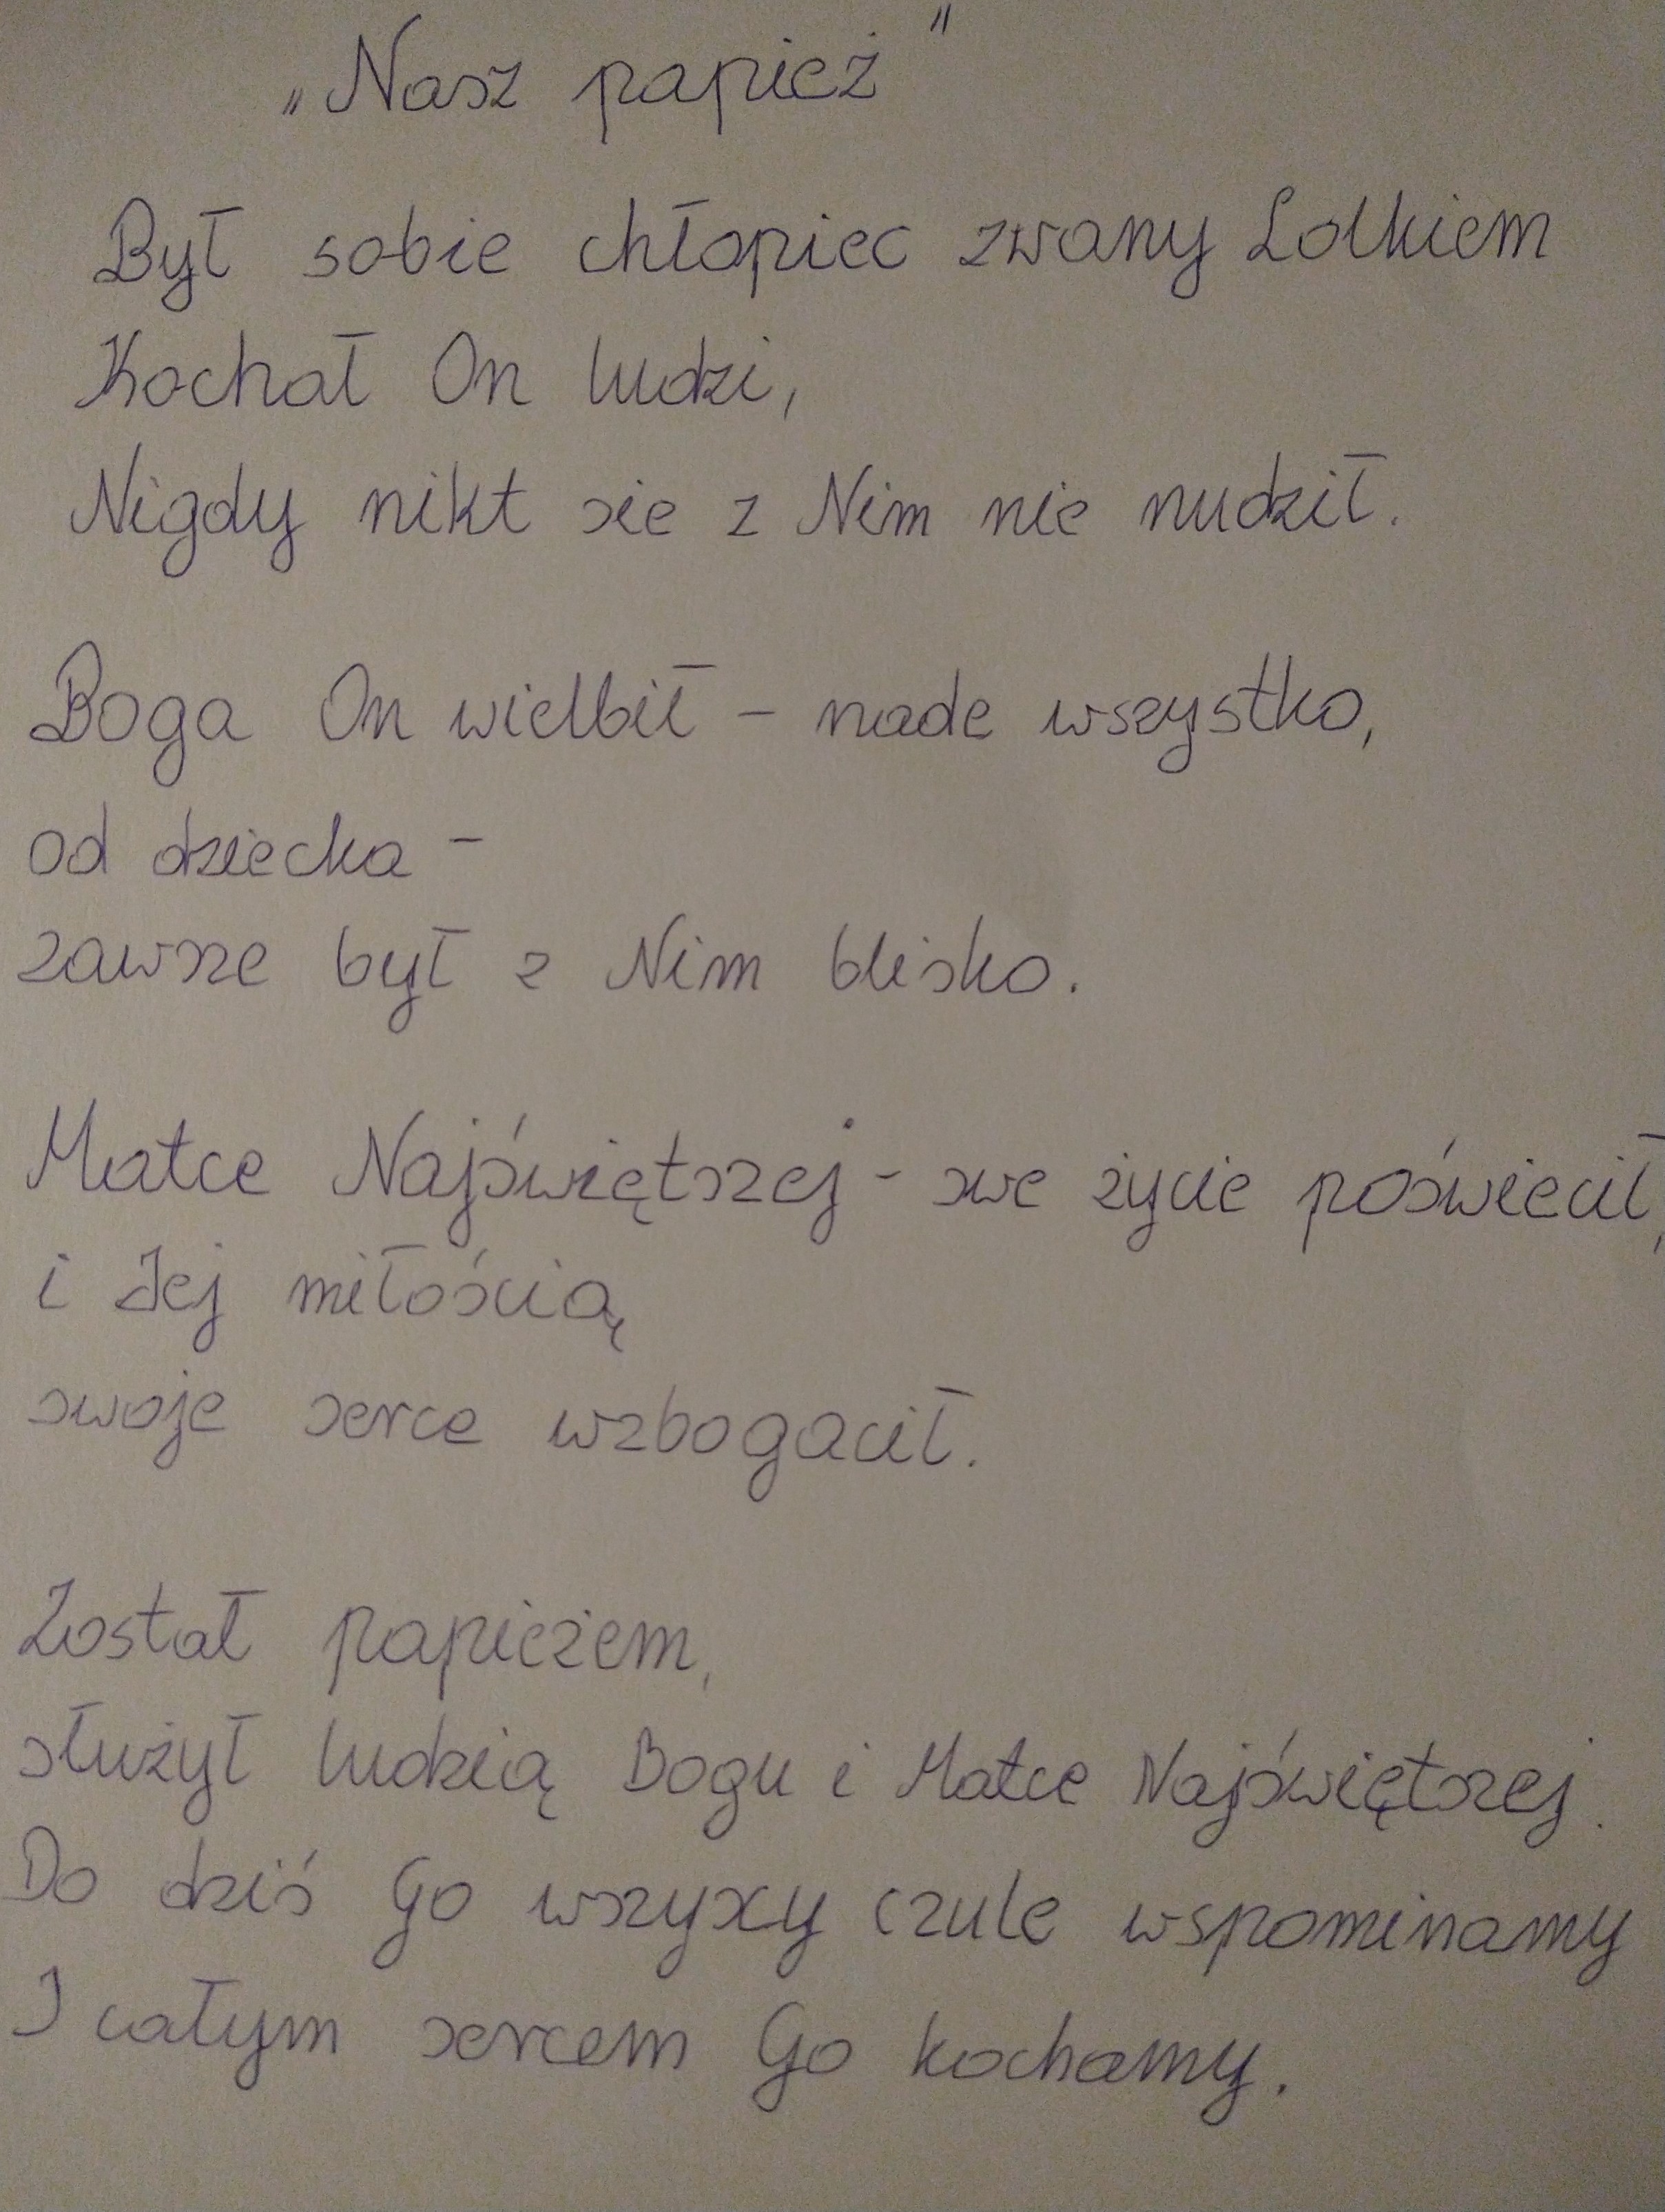 „Nasz papież"
Był sobie chłopiec zwany Lolkiem
Kochał On ludzi,
Nigdy nikt sie z Nim nie nudził.
Boga On wielbił – nade wszystko,
od dziecka –
zawsze był z Nim blisko.
Matce Najświętszej - swe życie poświecił,
i Jej miłością
swoje serce wzbogacił.
Został papieżem,
służył ludzią Bogu i Matce Najświętszej.
Do dziś Go wszyscy czule wspominamy
I całym sercem Go kochamy.